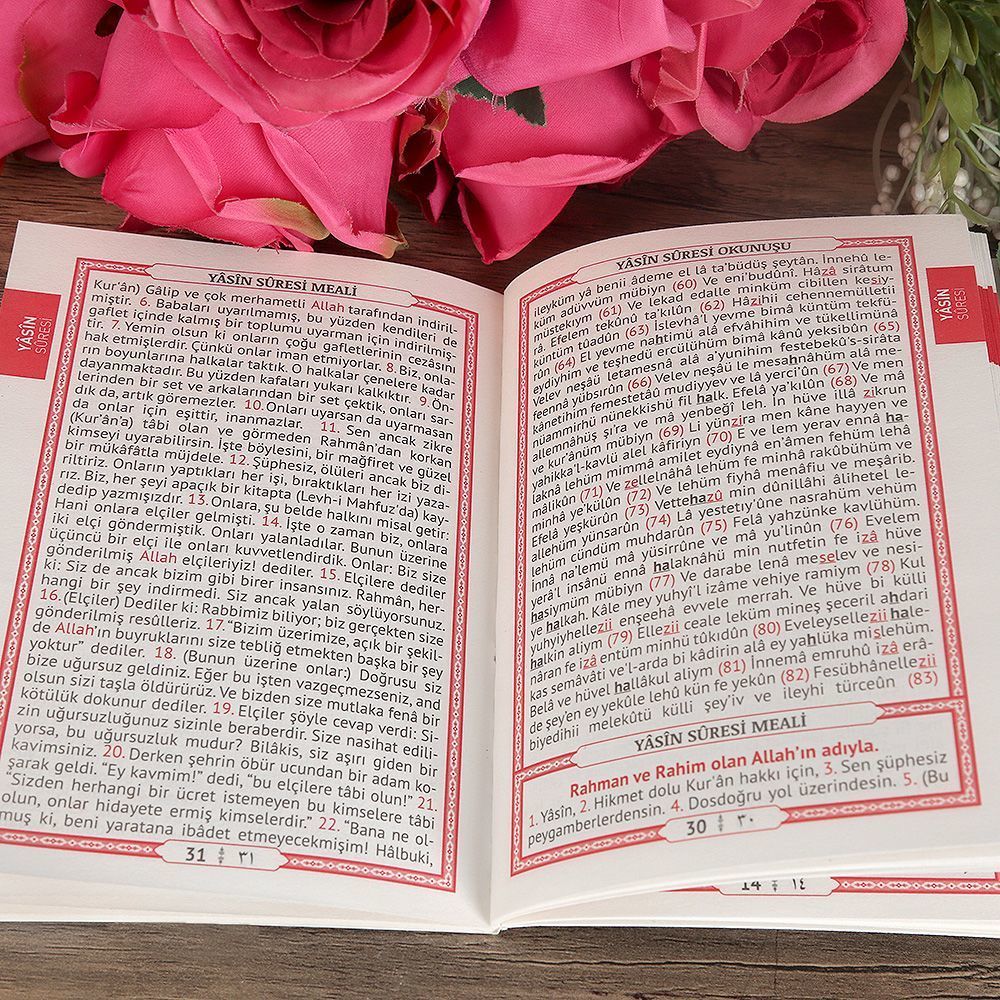 YÂSÎN SÛRESİ OKUNUŞU
ileyküm yâ benii âdeme el lâ ta'büdüş şeytân. İnnehû le-
küm adüvvüm mübiyn (60) Ve eni'budûnî. Hâzâ sirâtum
müstekıym (61) Ve lekad edalle minküm cibillen kesiy-
râ. Efelem tekûnû ta'kılûn (62) Hâzihii cehennemülletii
küntüm tûadûn (63) İslevhâ'l yevme bimâ küntüm tekfü-
rûn (64) El yevme nahtimü alâ efvâhihim ve tükellimünâ
eydiyhim ve teşhedü ercülühüm bimâ kânû yeksibûn (65)
Velev neşâü letamesnâ alâ a'yunihim festebeku's-sirâta
feennâ yübsırûn (66) Velev neşâü le mesahnâhüm alâ me-
kânetihim femestetâû mudiyyev ve lâ yerci'ûn (67) Ve men
nüammirhü nünekkishü fil halk. Efelâ ya'kılûn (68) Ve mâ
allemnâhüş şi'ra ve mâ yenbeğî leh. İn hüve illâ zikrun
ve kur'ânüm mübiyn (69) Li yünzira men kâne hayyen ve
yahıka'l-kavlü alel kâfiriyn (70) E ve lem yerav ennâ ha-
laknâ lehüm mimmâ amilet eydiynâ en'âmen fehüm lehâ
mâlikûn (71) Ve zellelnâhâ lehüm fe minhâ rakûbühüm ve
minhâ ye'külûn (72) Ve lehüm fiyhâ menâfiu ve meşârib.
Efelâ yeşkürûn (73) Vettehazû min dûnillâhi âlihetel le-
allehüm yünsarûn (74) Lâ yestetıy'ûne nasrahüm vehüm
lehüm cündüm muhdarûn (75) Felâ yahzünke kavlühüm.
İnnâ na'lemü mâ yüsirrûne ve mâ yu'linûn (76) Evelem
yerâ'l insânü ennâ halaknâhü min nutfetin fe izâ hüve
hasiymüm mübiyn (77) Ve darabe lenâ meselev ve nesi-
ye halkah. Kâle mey yuhyi'l izâme vehiye ramiym (78) Kul
yuhyiyhellezii enşeehâ evvele merrah. Ve hüve bi külli
halkin aliym (79) Ellezii ceale leküm mineş şeceril ahdari
nâran fe izâ entüm minhü tûkıdûn (80) Eveleysellezii hale-
kas semâvâti ve'l-arda bi kâdirin alâ ey yahlüka mislehüm.
Belâ ve hüvel hallâkul aliym (81) İnnemâ emruhû izâ erâ-
de şey'en ey yekûle lehû kün fe yekûn (82) Fesübhânellezii
biyedihii melekûtü külli şey'iv ve ileyhi türceûn (83)
YÂSÎN SÛRESİ MEALİ
Rahman ve Rahim olan Allah'ın adıyla.
1. Yâsîn, 2. Hikmet dolu Kur'ân hakkı için, 3. Sen şüphesiz
peygamberlerdensin. 4. Dosdoğru yol üzerindesin. 5. (Bu
30 ٣٠
YÂSÎN
SÛRESİ
14 ١٤
YÂSÎN SÛRESİ MEALİ
Kur'ân) Gâlip ve çok merhametli Allah tarafından indiril-
miştir. 6. Babaları uyarılmamış, bu yüzden kendileri de
gaflet içinde kalmış bir toplumu uyarman için indirilmiş-
tir. 7. Yemin olsun ki onların çoğu gafletlerinin cezâsını
hak etmişlerdir. Çünkü onlar iman etmiyorlar. 8. Biz, onla-
rın boyunlarına halkalar taktık. O halkalar çenelere kadar
dayanmaktadır. Bu yüzden kafaları yukarı kalkıktır. 9. Ön-
lerinden bir set ve arkalarından bir set çektik, onları sar-
dık da, artık göremezler. 10. Onları uyarsan da uyarmasan
da onlar için eşittir, inanmazlar. 11. Sen ancak zikre
(Kur'ân'a) tâbi olan ve görmeden Rahmân'dan korkan
kimseyi uyarabilirsin. İşte böylesini, bir mağfiret ve güzel
bir mükâfâtla müjdele. 12. Şüphesiz, ölüleri ancak biz di-
riltiriz. Onların yaptıkları her işi, bıraktıkları her izi yaza-
rız. Biz, her şeyi apaçık bir kitapta (Levh-i Mahfuz'da) kay-
dedip yazmışızdır. 13. Onlara, şu belde halkını misal getir:
Hani onlara elçiler gelmişti. 14. İşte o zaman biz, onlara
iki elçi göndermiştik. Onları yalanladılar. Bunun üzerine
üçüncü bir elçi ile onları kuvvetlendirdik. Onlar: Biz size
gönderilmiş Allah elçileriyiz! dediler. 15. Elçilere dediler
ki: Siz de ancak bizim gibi birer insansınız. Rahmân, her-
hangi bir şey indirmedi. Siz ancak yalan söylüyorsunuz.
16. (Elçiler) Dediler ki: Rabbimiz biliyor; biz gerçekten size
gönderilmiş resûlleriz. 17. "Bizim üzerimize, açık bir şekil-
de Allah'ın buyruklarını size tebliğ etmekten başka bir şey
yoktur" dediler. 18. (Bunun üzerine onlar:) Doğrusu siz
bize uğursuz geldiniz. Eğer bu işten vazgeçmezseniz, and
olsun sizi taşla öldürürüz. Ve bizden size mutlaka fenâ bir
kötülük dokunur dediler. 19. Elçiler şöyle cevap verdi: Si-
zin uğursuzluğunuz sizinle beraberdir. Size nasihat edili-
yorsa, bu uğursuzluk mudur? Bilâkis, siz aşırı giden bir
kavimsiniz. 20. Derken şehrin öbür ucundan bir adam ko-
şarak geldi. "Ey kavmim!" dedi, "bu elçilere tâbi olun!" 21.
"Sizden herhangi bir ücret istemeyen bu kimselere tâbi
olun, onlar hidayete ermiş kimselerdir." 22. "Bana ne ol-
muş ki, beni yaratana ibâdet etmeyecekmişim! Hâlbuki,
31 ٣١
YÂSÎN
SÛRESİ